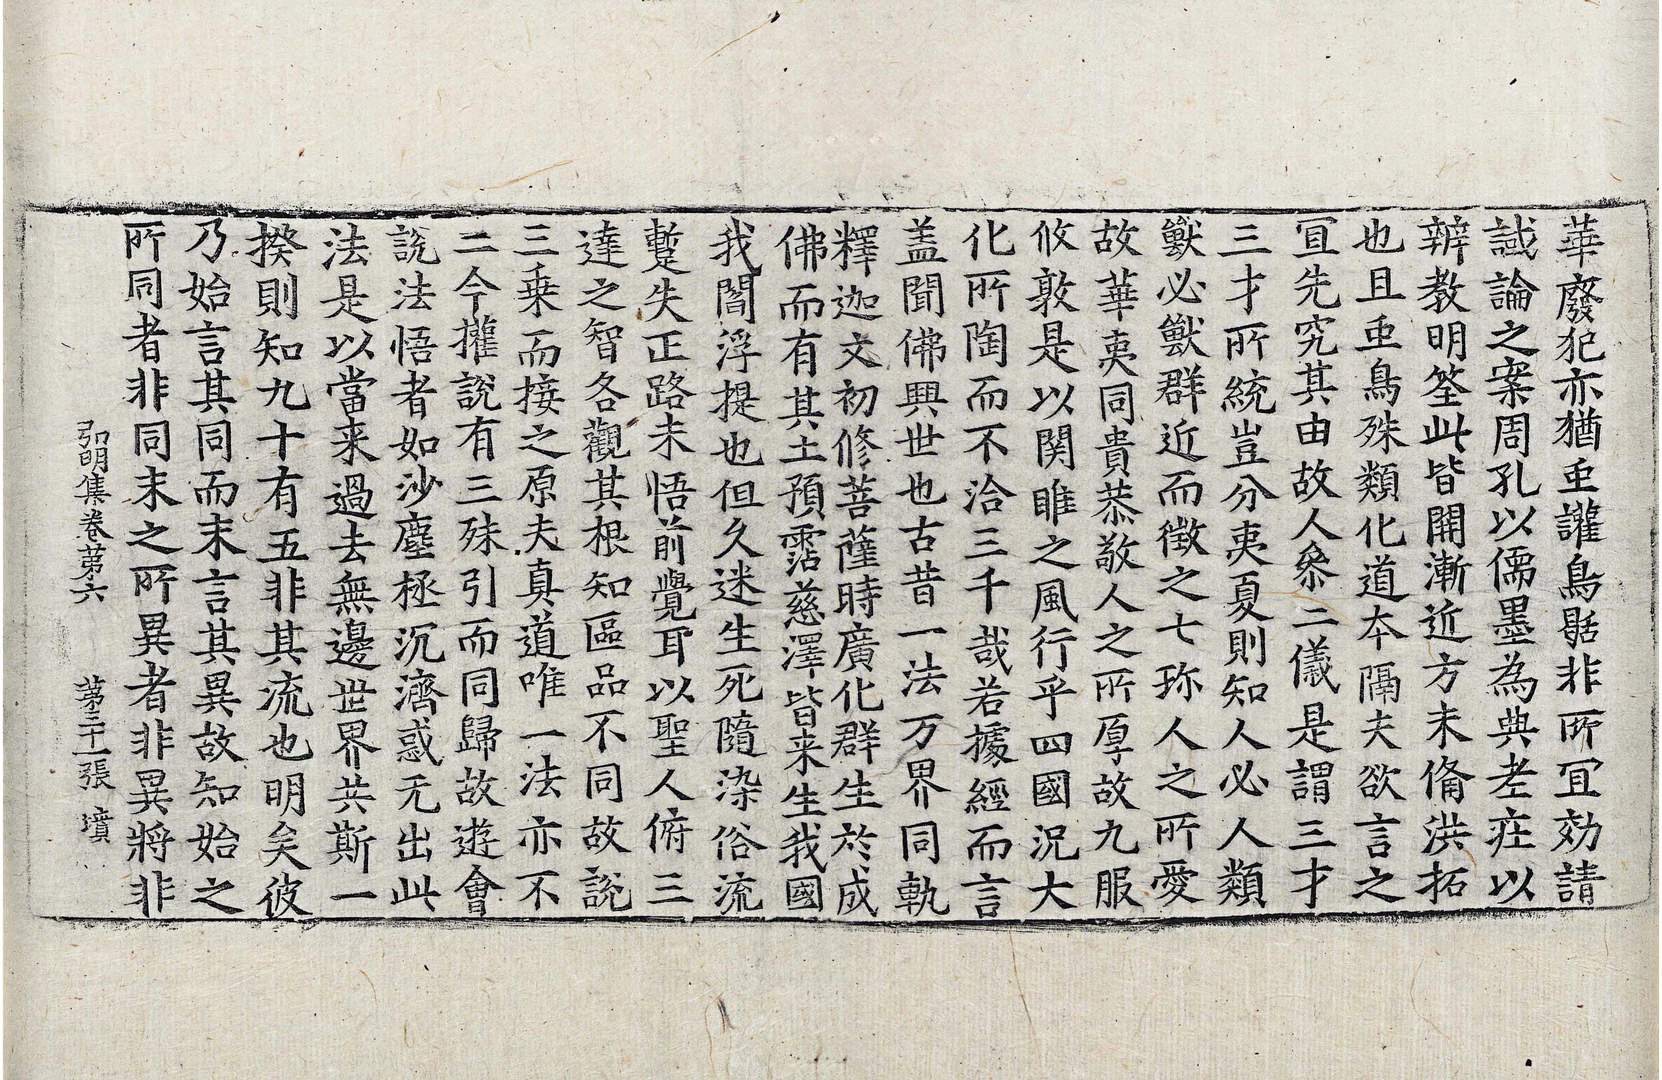 華廢犯亦猶䖝讙鳥聒非所冝効請
試論之案周孔以儒墨為典老庄以
辯教明筌此皆開漸近方未俻洪拓
也且䖝鳥殊類化道夲隔夫欲言之
冝先究其由故人叅二儀是謂三才
三才所統豈分夷夏則知人必人類
獸必獸群近而徵之七珎人之所愛
故華夷同貴恭敬人之所厚故九服
攸敦是以関雎之風行乎四國況大
化所陶而不洽三千哉若據經而言
盖聞佛興世也古昔一法万界同軌
釋迦文初修菩薩時廣化群生於成
佛而有其土預霑慈澤皆来生我國
我閻浮提也但久迷生死隨染俗流
蹔失正路未悟前覺耳以聖人俯三
達之智各觀其根知區品不同故說
三乗而接之原夫真道唯一法亦不
二今攉說有三殊引而同歸故遊會
說法悟者如沙塵極沉濟惑无出此
法是以當来過去無邊世界共斯一
揆則知九十有五非其流也明矣彼
乃始言其同而末言其異故知始之
所同者非同末之所異者非異將非
弘明集卷苐六　苐三十一張　墳